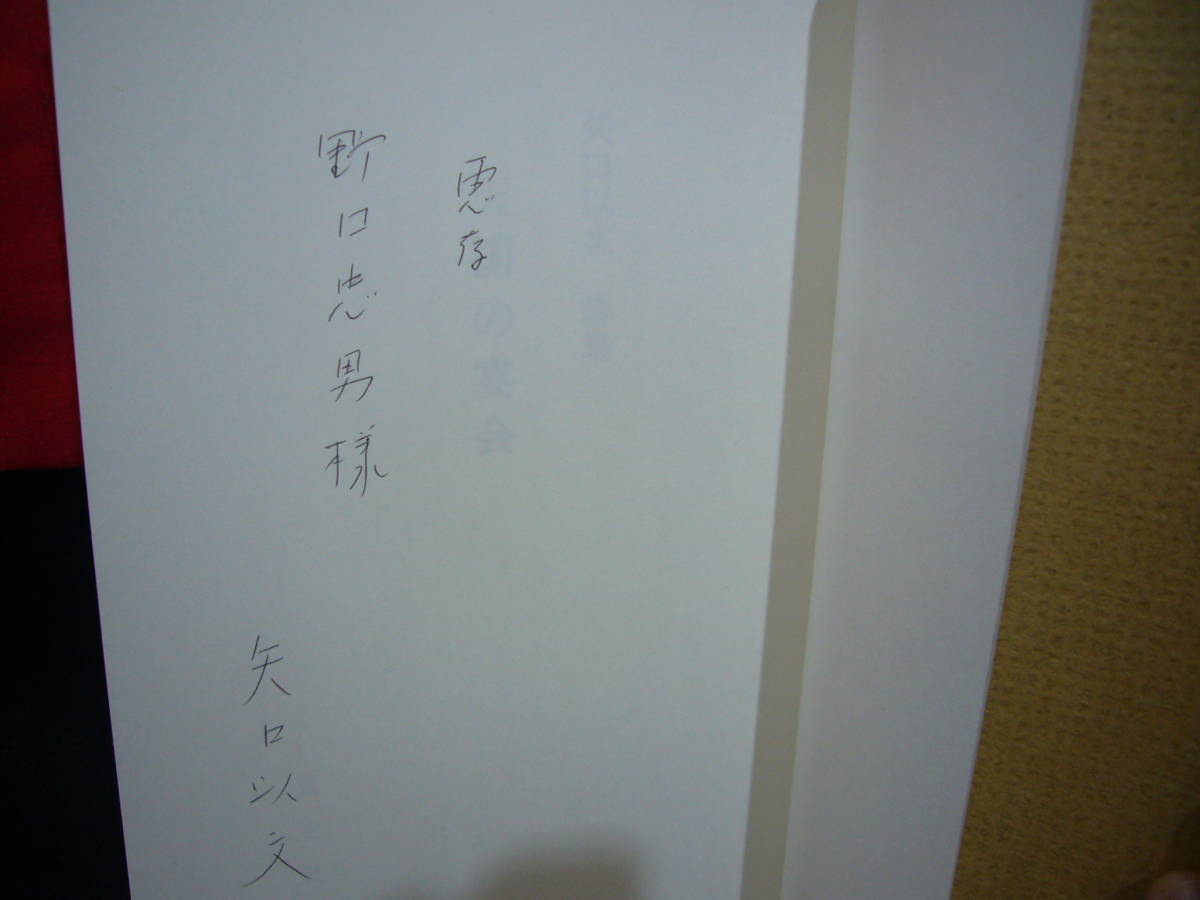 恵存
野口忠男様
矢口以文